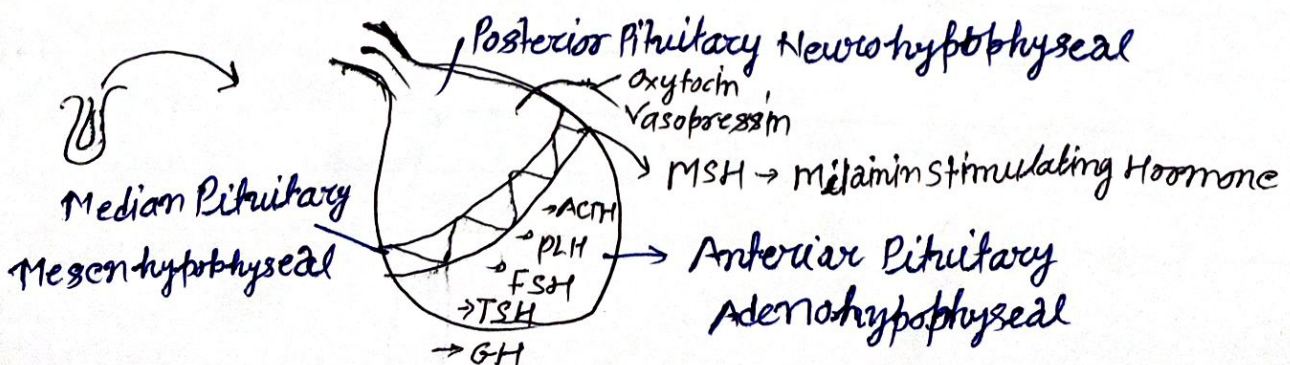 Posterior Pituitary Neurohypophyseal
Oxytocin
Vasopressin
MSH → Melaminstimulating Hormone
Median Pituitary
Mesenhypophyseal
→ ACTH
→ PLH
→ FSH
→ TSH
→ GH
Anteriar Pituitary
Adenohypophyseal